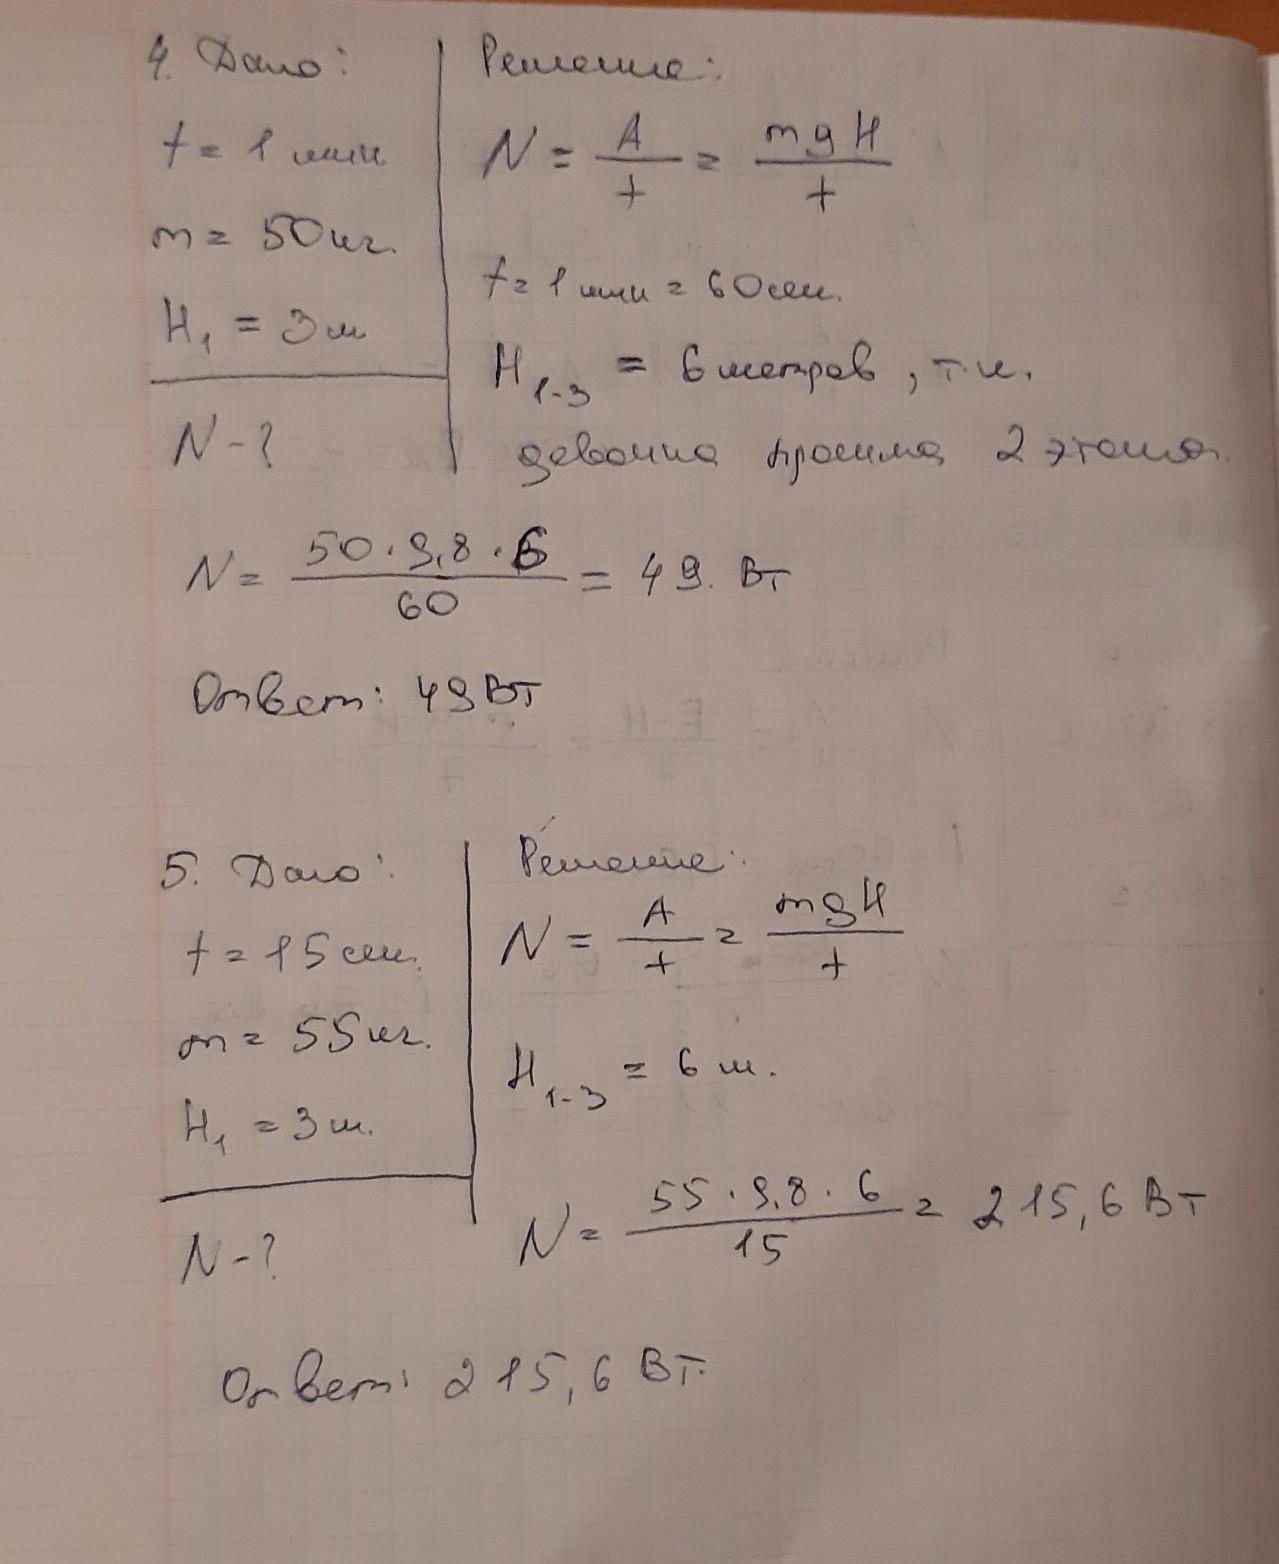 4. Дано:
t = 1 мин.
m = 50 кг.
H₁ = 3 м
N - ?
Решение:
N = A/t = mgH/t
t = 1 мин = 60 сек.
H₁₋₃ = 6 метров, т.к.
девочка прошла 2 этажа.
N = 50 · 9,8 · 6 / 60 = 49. Вт
Ответ: 49 Вт
5. Дано:
t = 15 сек.
m = 55 кг.
H₁ = 3 м.
N - ?
Решение:
N = A/t = mgH/t
H₁₋₃ = 6 м.
N = 55 · 9,8 · 6 / 15 = 215,6 Вт
Ответ: 215,6 Вт.